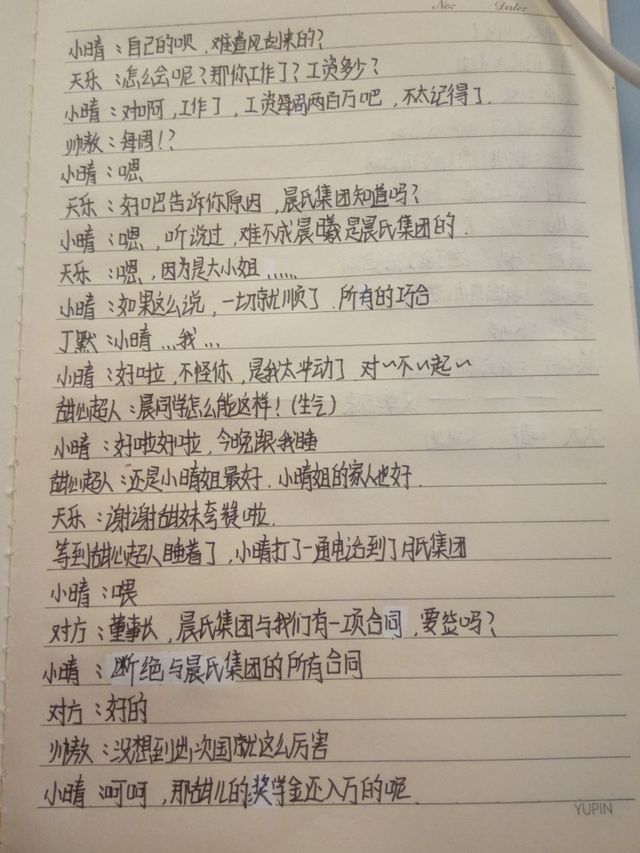 No: Date:
小晴：自己的呗，难道风刮来的？
天乐：怎么会呢？那你工作了？工资多少？
小晴：对啊，工作了，工资每周两百万吧，不太记得了.
帅敖：每周！？
小晴：嗯
天乐：好吧告诉你原因，晨氏集团知道吗？
小晴：嗯，听说过，难不成晨曦是晨氏集团的.
天乐：嗯，因为是大小姐……
小晴：如果这么说，一切就顺了.所有的巧合
丁默：小晴...我...
小晴：好啦，不怪你，是我太冲动了.对~不~起~
甜心超人：晨同学怎么能这样！(生气)
小晴：好啦好啦，今晚跟我睡
甜心超人：还是小晴姐最好.小晴姐的家人也好.
天乐：谢谢甜妹夸赞啦.
等到甜心超人睡着了，小晴打了一通电话到了月氏集团
小晴：喂
对方：董事长，晨氏集团与我们有一项合同，要签吗？
小晴：断绝与晨氏集团的所有合同
对方：好的
帅敖：没想到出次国就这么厉害
小晴：呵呵，那甜儿的奖学金还入万的呢.
YUPIN